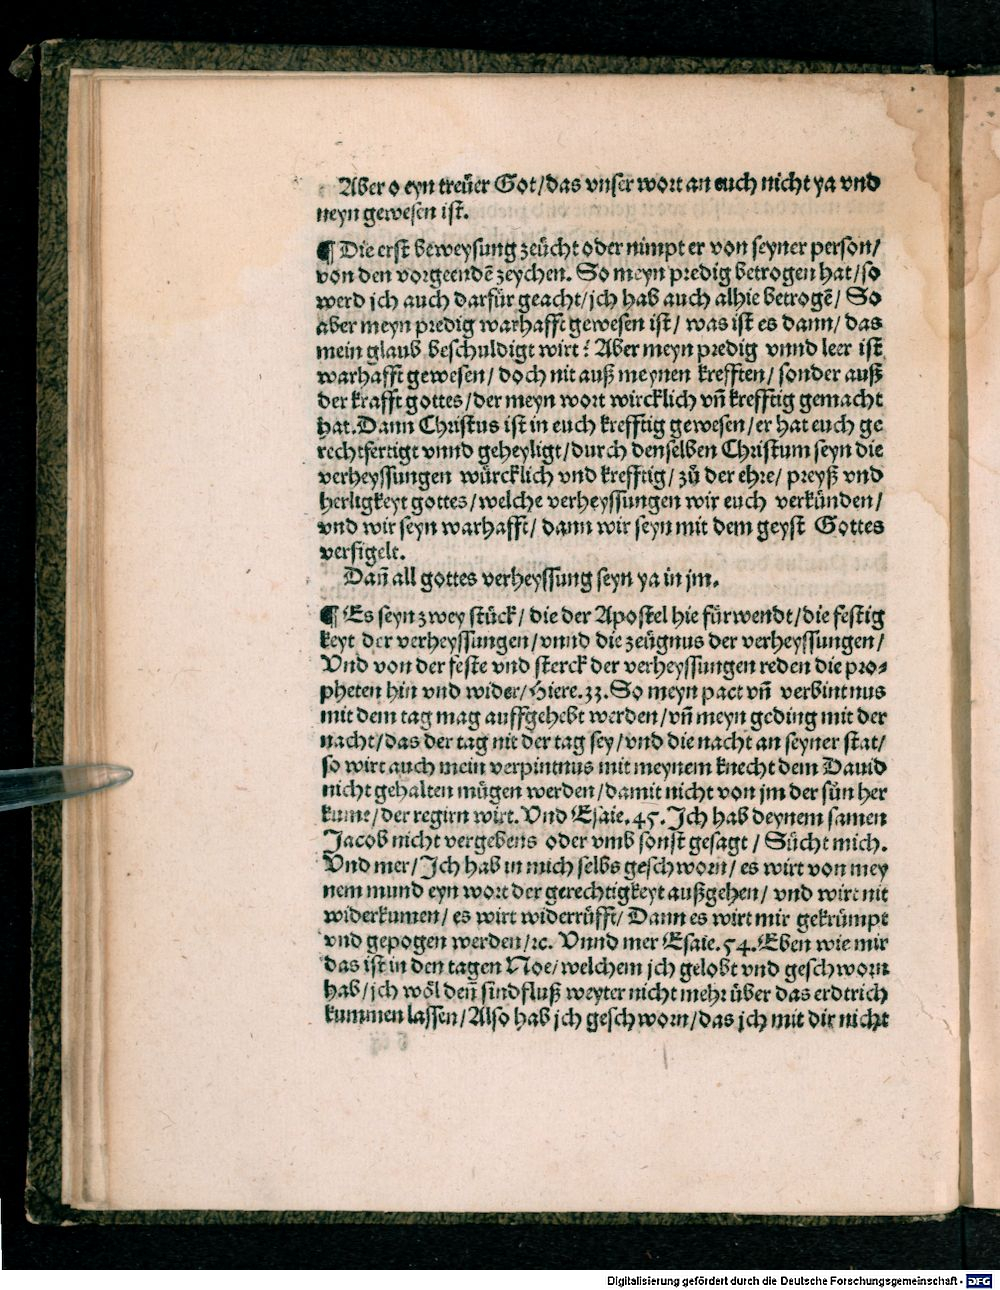 Aber o eyn treüer Got/das vnser wort an euch nicht ya vnd
neyn gewesen ist.
¶ Die erst beweysung zeücht oder nimpt er von seyner person/
von den vorgeendē zeychen. So meyn predig betrogen hat/so
werd jch auch darfür geacht/jch hab auch alhie betrogē/ So
aber meyn predig warhafft gewesen ist/ was ist es dann/das
mein glaub beschuldigt wirt? Aber meyn predig vnnd leer ist
warhafft gewesen/ doch nit auß meynen krefften/ sonder auß
der krafft gottes/der meyn wort wircklich vñ krefftig gemacht
hat. Dann Christus ist in euch krefftig gewesen/er hat euch ge
rechtfertigt vnnd geheyligt/durch denselben Christum seyn die
verheyssungen würcklich vnd krefftig/ zů der ehre/ preyß vnd
herligkeyt gottes/welche verheyssungen wir euch verkünden/
vnd wir seyn warhafft/ dann wir seyn mit dem geyst Gottes
versigelt.
Dañ all gottes verheyssung seyn ya in jm.
¶ Es seyn zwey stück/ die der Apostel hie fürwendt/die festig
keyt der verheyssungen/vnnd die zeügnus der verheyssungen/
Vnd von der feste vnd sterck der verheyssungen reden die pro⸗
pheten hin vnd wider/Hiere.33. So meyn pact vñ verbintnus
mit dem tag mag auffgehebt werden/vñ meyn geding mit der
nacht/das der tag nit der tag sey/vnd die nacht an seyner stat/
so wirt auch mein verpintnus mit meynem knecht dem Dauid
nicht gehalten mügen werden/damit nicht von jm der sůn her
kume/der regirn wirt. Vnd Esaie.45. Jch hab deynem samen
Jacob nicht vergebens oder vmb sonst gesagt/ Sücht mich.
Vnd mer/Jch hab in mich selbs geschworn/ es wirt von mey
nem mund eyn wort der gerechtigkeyt außgehen/ vnd wirt nit
widerkumen/ es wirt widerrůfft/ Dann es wirt mir gekrümpt
vnd gepogen werden/ꝛc. Vnnd mer Esaie.54. Eben wie mir
das ist in den tagen Noe/welchem jch gelobt vnd geschworn
hab/jch wöl deñ sindfluß weyter nicht mehr über das erdtrich
kummen lassen/Also hab jch geschworn/das jch mit dir nicht
Digitalisierung gefördert durch die Deutsche Forschungsgemeinschaft - DFG